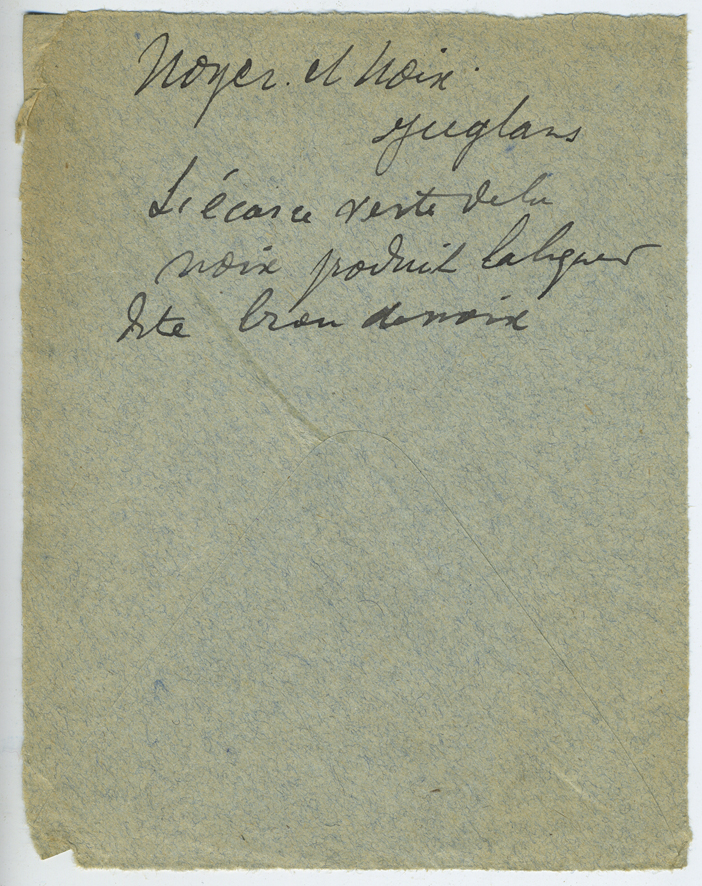 Noyer et Noix
Juglans
L'écorce verte de la
noix produit la liqueur
dite brou de noix